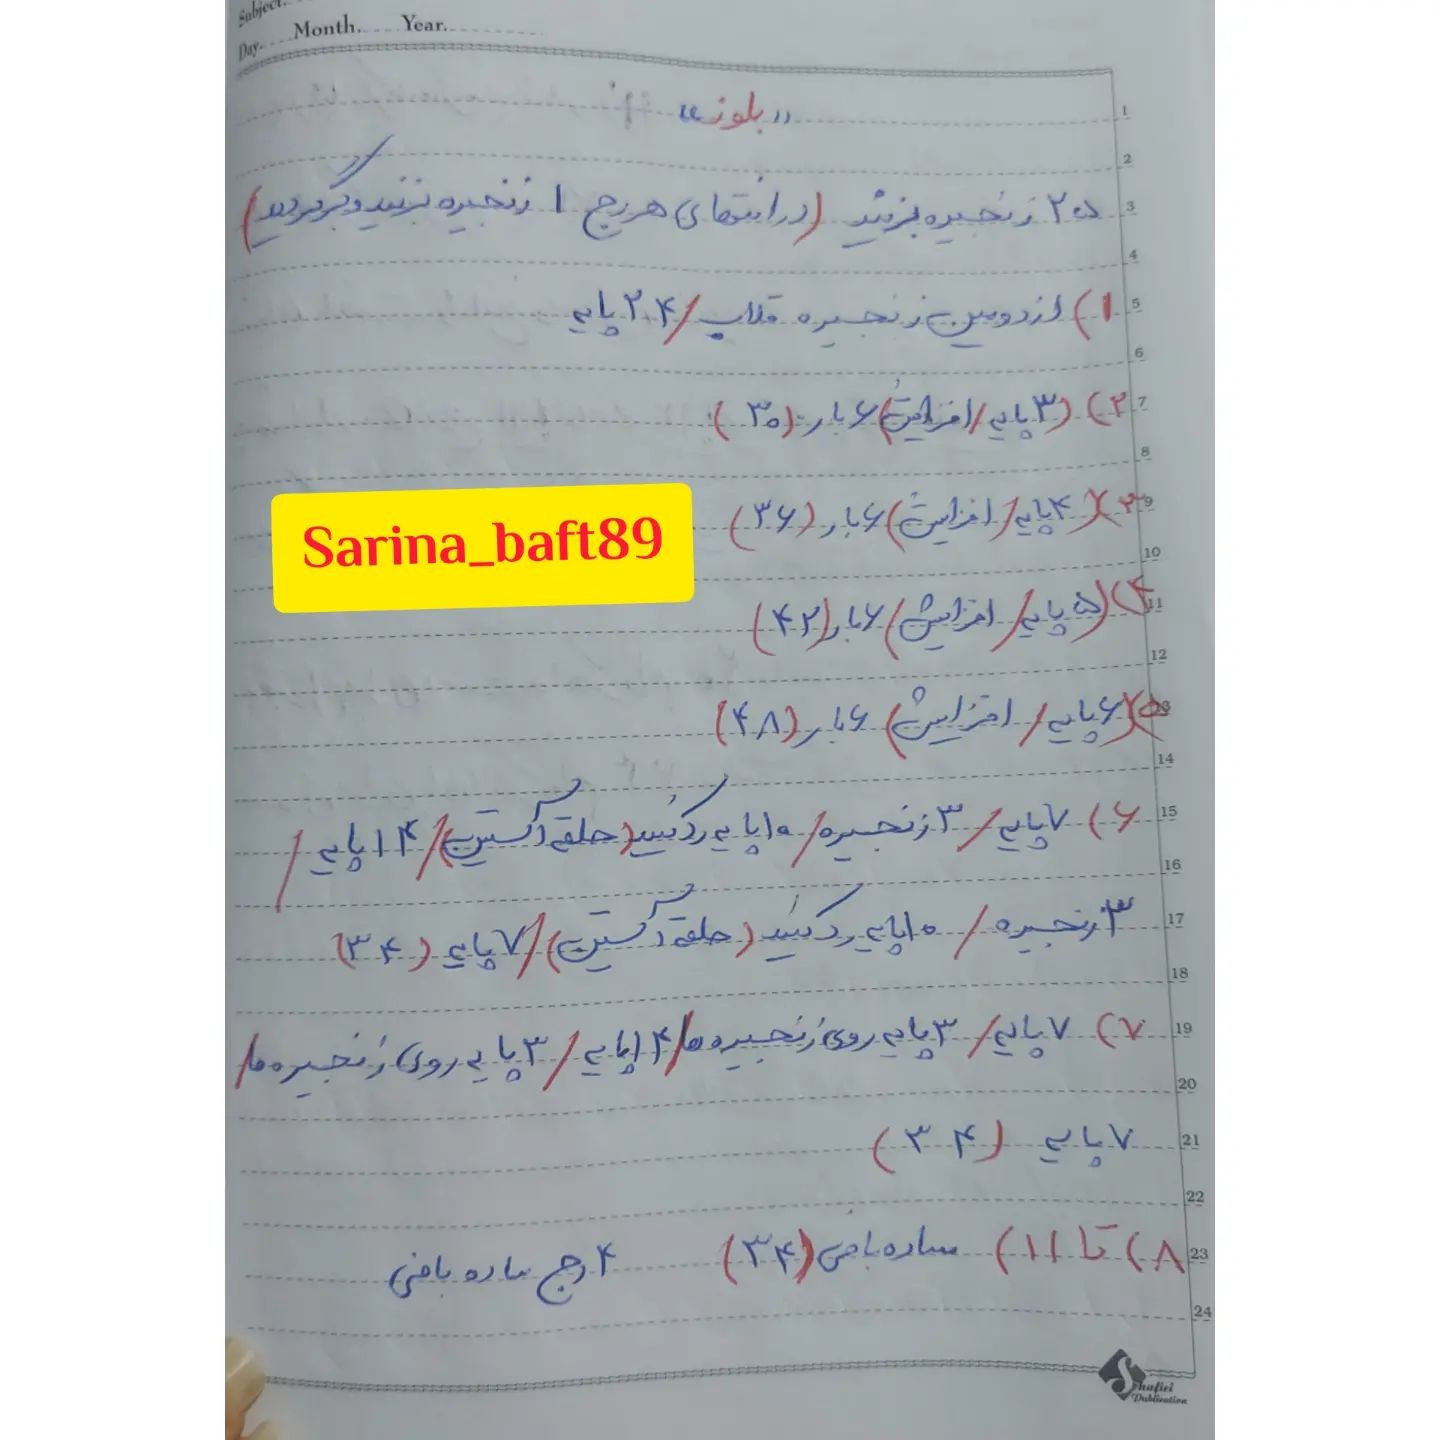 Subject.
Day. Month. Year.
"بلوز"
۲۵ زنجیره بزنید (در انتهای هر رج ۱ زنجیره بزنید و برگردید)
۱) از دومین زنجیره قلاب / ۲۴ پایه
۲) (۳ پایه / افزایش) ۶ بار (۳۰)
۳) (۴ پایه / افزایش) ۶ بار (۳۶)
Sarina_baft89
۴) (۵ پایه / افزایش) ۶ بار (۴۲)
۵) (۶ پایه / افزایش) ۶ بار (۴۸)
۶) ۷ پایه / ۳ زنجیره / ۱۰ پایه رد کنید (حلقه آستین) / ۱۴ پایه /
۳ زنجیره / ۱۰ پایه رد کنید (حلقه آستین) / ۷ پایه (۳۴)
۷) ۷ پایه / ۳ پایه روی زنجیره ها / ۱۴ پایه / ۳ پایه روی زنجیره ها /
۷ پایه (۳۴)
۸) تا ۱۱) ساده بافی (۳۴) ۴ رج ساده بافی
1
2
3
4
5
6
7
8
9
10
11
12
13
14
15
16
17
18
19
20
21
22
23
24
Shafiei
Publication